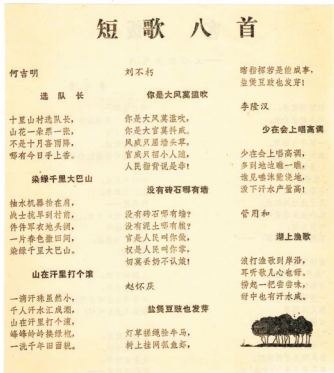 短歌八首
何吉明
选队长
十里山村选队长,
山花一朵票一张,
不是十月喜雨降,
哪有今日手上香。
染绿千里大巴山
抽水机器抬在肩,
战士抗旱到村前,
件件军衣地头润,
一片春色撒田间,
染绿千里大巴山。
山在汗里打个滚
一滴汗珠虽然小,
千人汗水汇成潮,
山在汗里打个滚,
一洗千年旧面貌。
刘不朽
你是大风莫滥吹
你是大风莫滥吹,
你是大官莫抖威。
风威只屈墙头草,
官威只招小人随,
人民指背说是非!
没有砖石哪有墙
没有砖石哪有墙?
没有泥土哪有粮?
官是人民叫你做,
权是人民叫你掌,
切莫丢奶不认娘!
赵怀荫
盐煲豆豉也发芽
灯草搓绳拴牛马,
树上挂网抓鱼虾,
瞎指挥若是能成事,
盐煲豆豉也发芽!
李隆汉
少在会上唱高调
少在会上唱高调,
多到地边瞧一瞧,
谁见嘴沫能浇地,
泼下汗水产量高!
管用和
湖上渔歌
浪打渔歌到岸沿,
耳听歌儿心也甜。
捞起一把尝尝味,
甜中也有汗水咸。